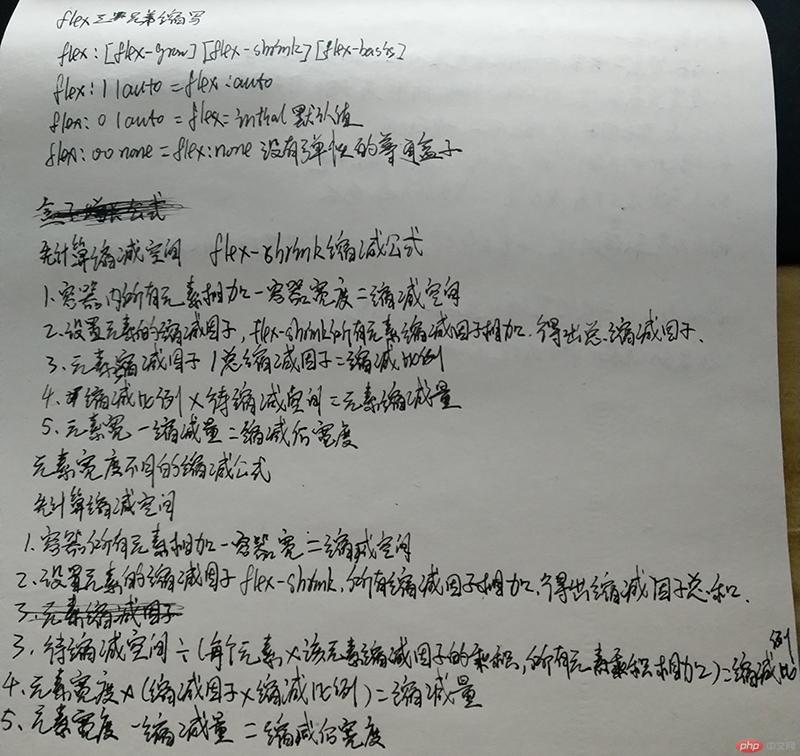 flex三兄弟缩写
flex:[flex-grow][flex-shrink][flex-basis]
flex:1 1 auto = flex:auto
flex: 0 1 auto = flex=initial 默认值
flex: 0 0 none = flex:none 没有弹性的普通盒子
先计算缩减空间 flex-shrink缩减公式
1.容器内所有元素相加-容器宽度=缩减空间
2.设置元素的缩减因子,flex-shrink所有元素缩减因子相加.得出总缩减因子.
3.元素缩减因子/总缩减因子=缩减比例
4.缩减比例×待缩减空间=元素缩减量
5.元素宽-缩减量=缩减后宽度
元素宽度不同的缩减公式
先计算缩减空间
1.容器所有元素相加-容器宽=缩减空间
2.设置元素的缩减因子flex-shrink,所有缩减因子相加,得出缩减因子总和.
3.元素缩减因子
3.待缩减空间÷(每个元素×该元素缩减因子的乘积,所有元素乘积相加)=缩减比例
4.元素宽度×(缩减因子×缩减比例)=缩减量
5.元素宽度-缩减量=缩减后宽度
php 中文网